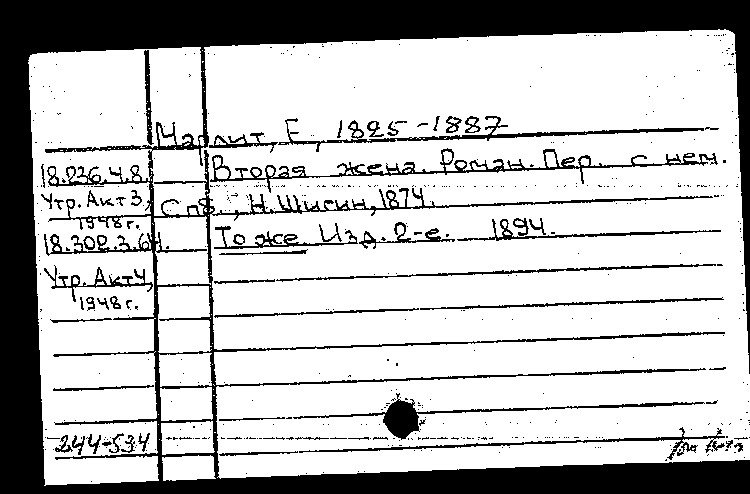 Марлит, Е., 1825-1887
18.236.4.8. Вторая жена. Роман. Пер. с нем.
Утр. Акт 3, Спб., Н. Шигин, 1874.
1948 г.
18.302.3.64. То же Изд. 2-е. 1894.
Утр. Акт 4,
1948 г.
244-534